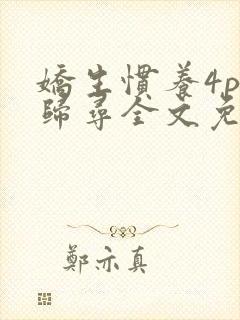 嬌生慣養4p
歸尋全文免
鄭亦真